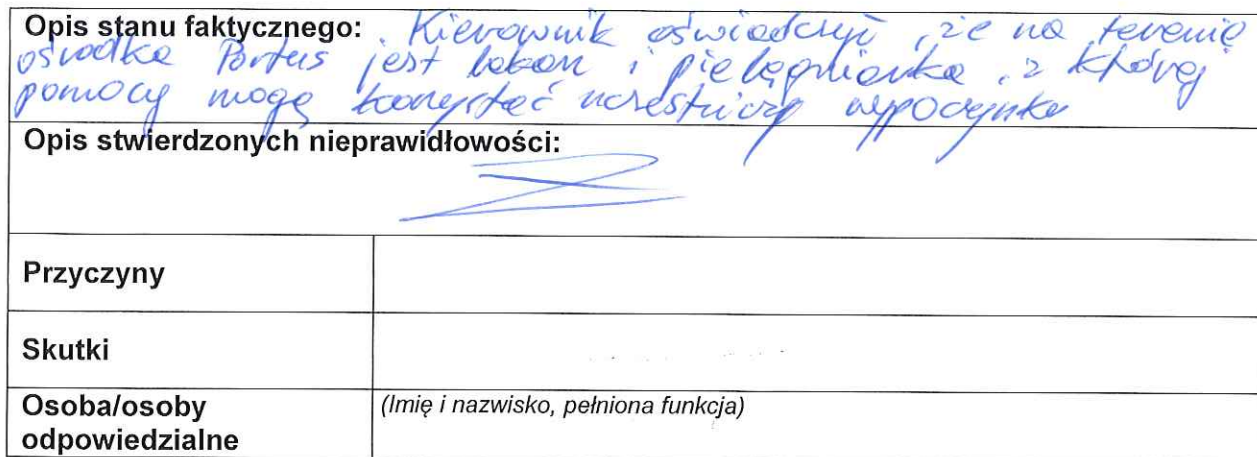 Opis stanu faktycznego: Kierownik oświadczył, że na terenie
ośrodka Portus jest lekarz i pielęgniarka, z której
pomocy mogą korzystać uczestnicy wypoczynku
Opis stwierdzonych nieprawidłowości:
Przyczyny
Skutki
Osoba/osoby (Imię i nazwisko, pełniona funkcja)
odpowiedzialne